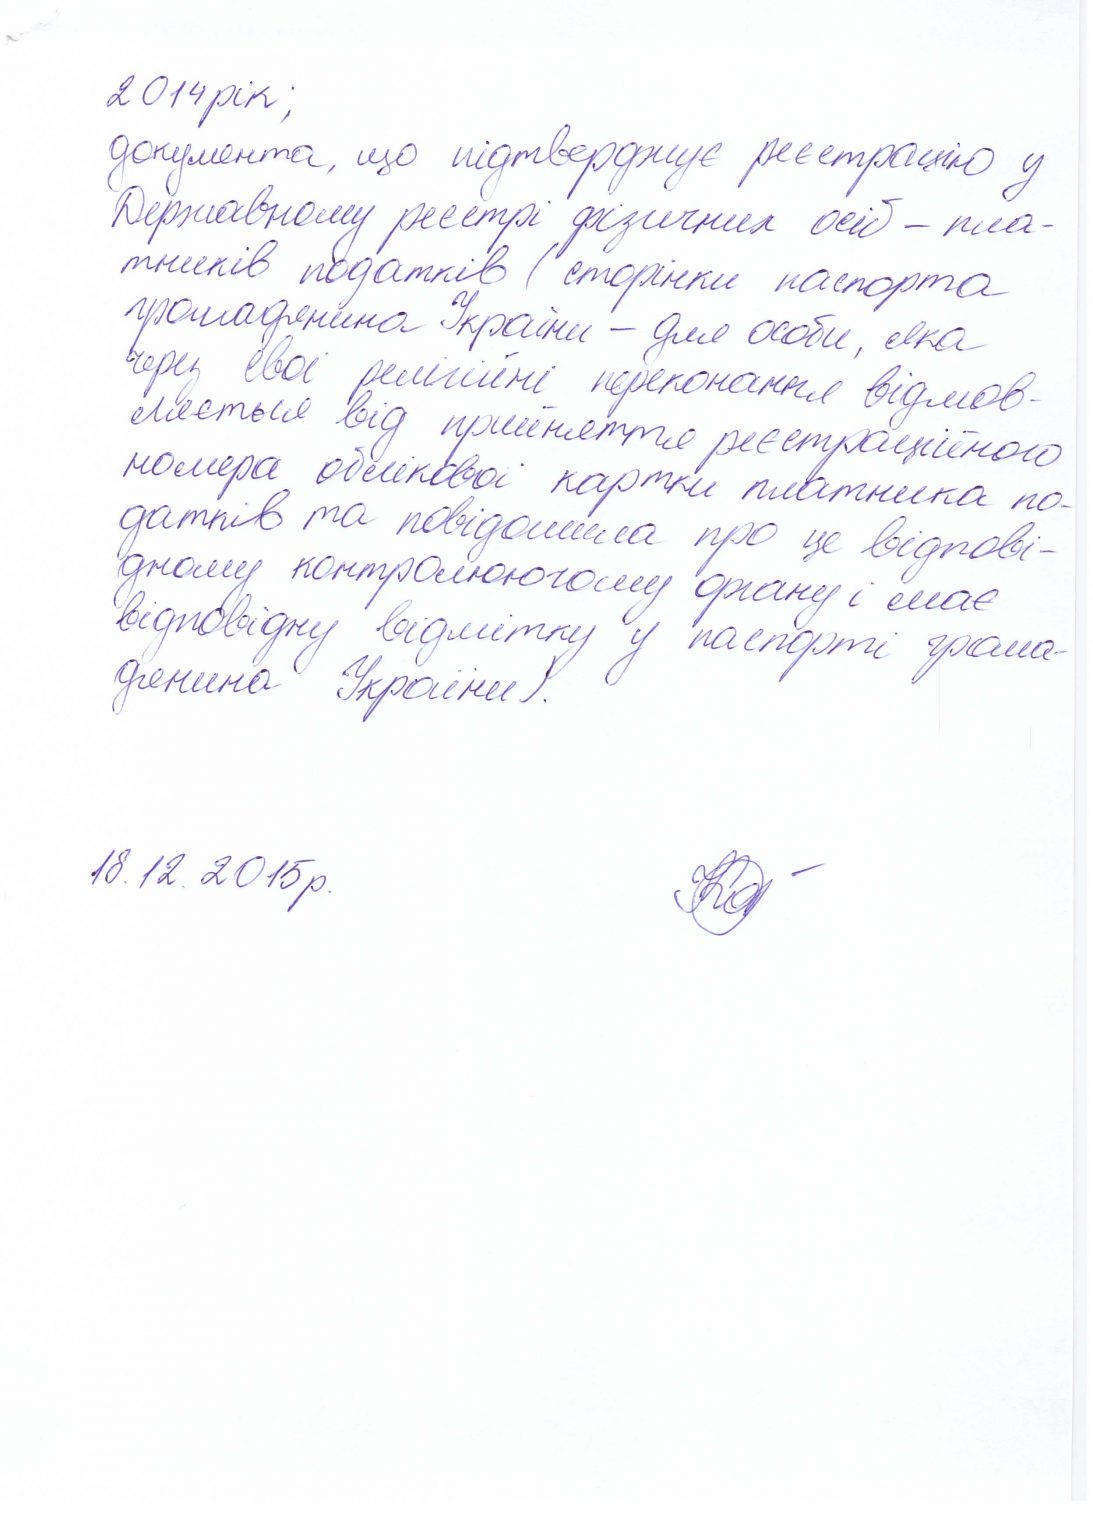 2014рік;
документа, що підтверджує реєстрацію у
Державному реєстрі фізичних осіб – пла-
тників податків (сторінки паспорта
громадянина України – для особи, яка
через свої релігійні переконання відмов-
ляється від прийняття реєстраційного
номера облікової картки платника по-
датків та повідомила про це відпові-
дному контролюючому органу і має
відповідну відмітку у паспорті грома-
дянина України).
18.12.2015р.